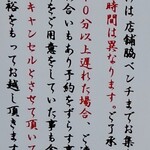 は店舗脇ベンチまでお集
時間は異なります。ご了承
0分以上遅れた場合、ご
合いもあり予約をずらす事
をご用意をしていた事も含
キャンセルとさせて頂いて
裕をもってお越し頂ます